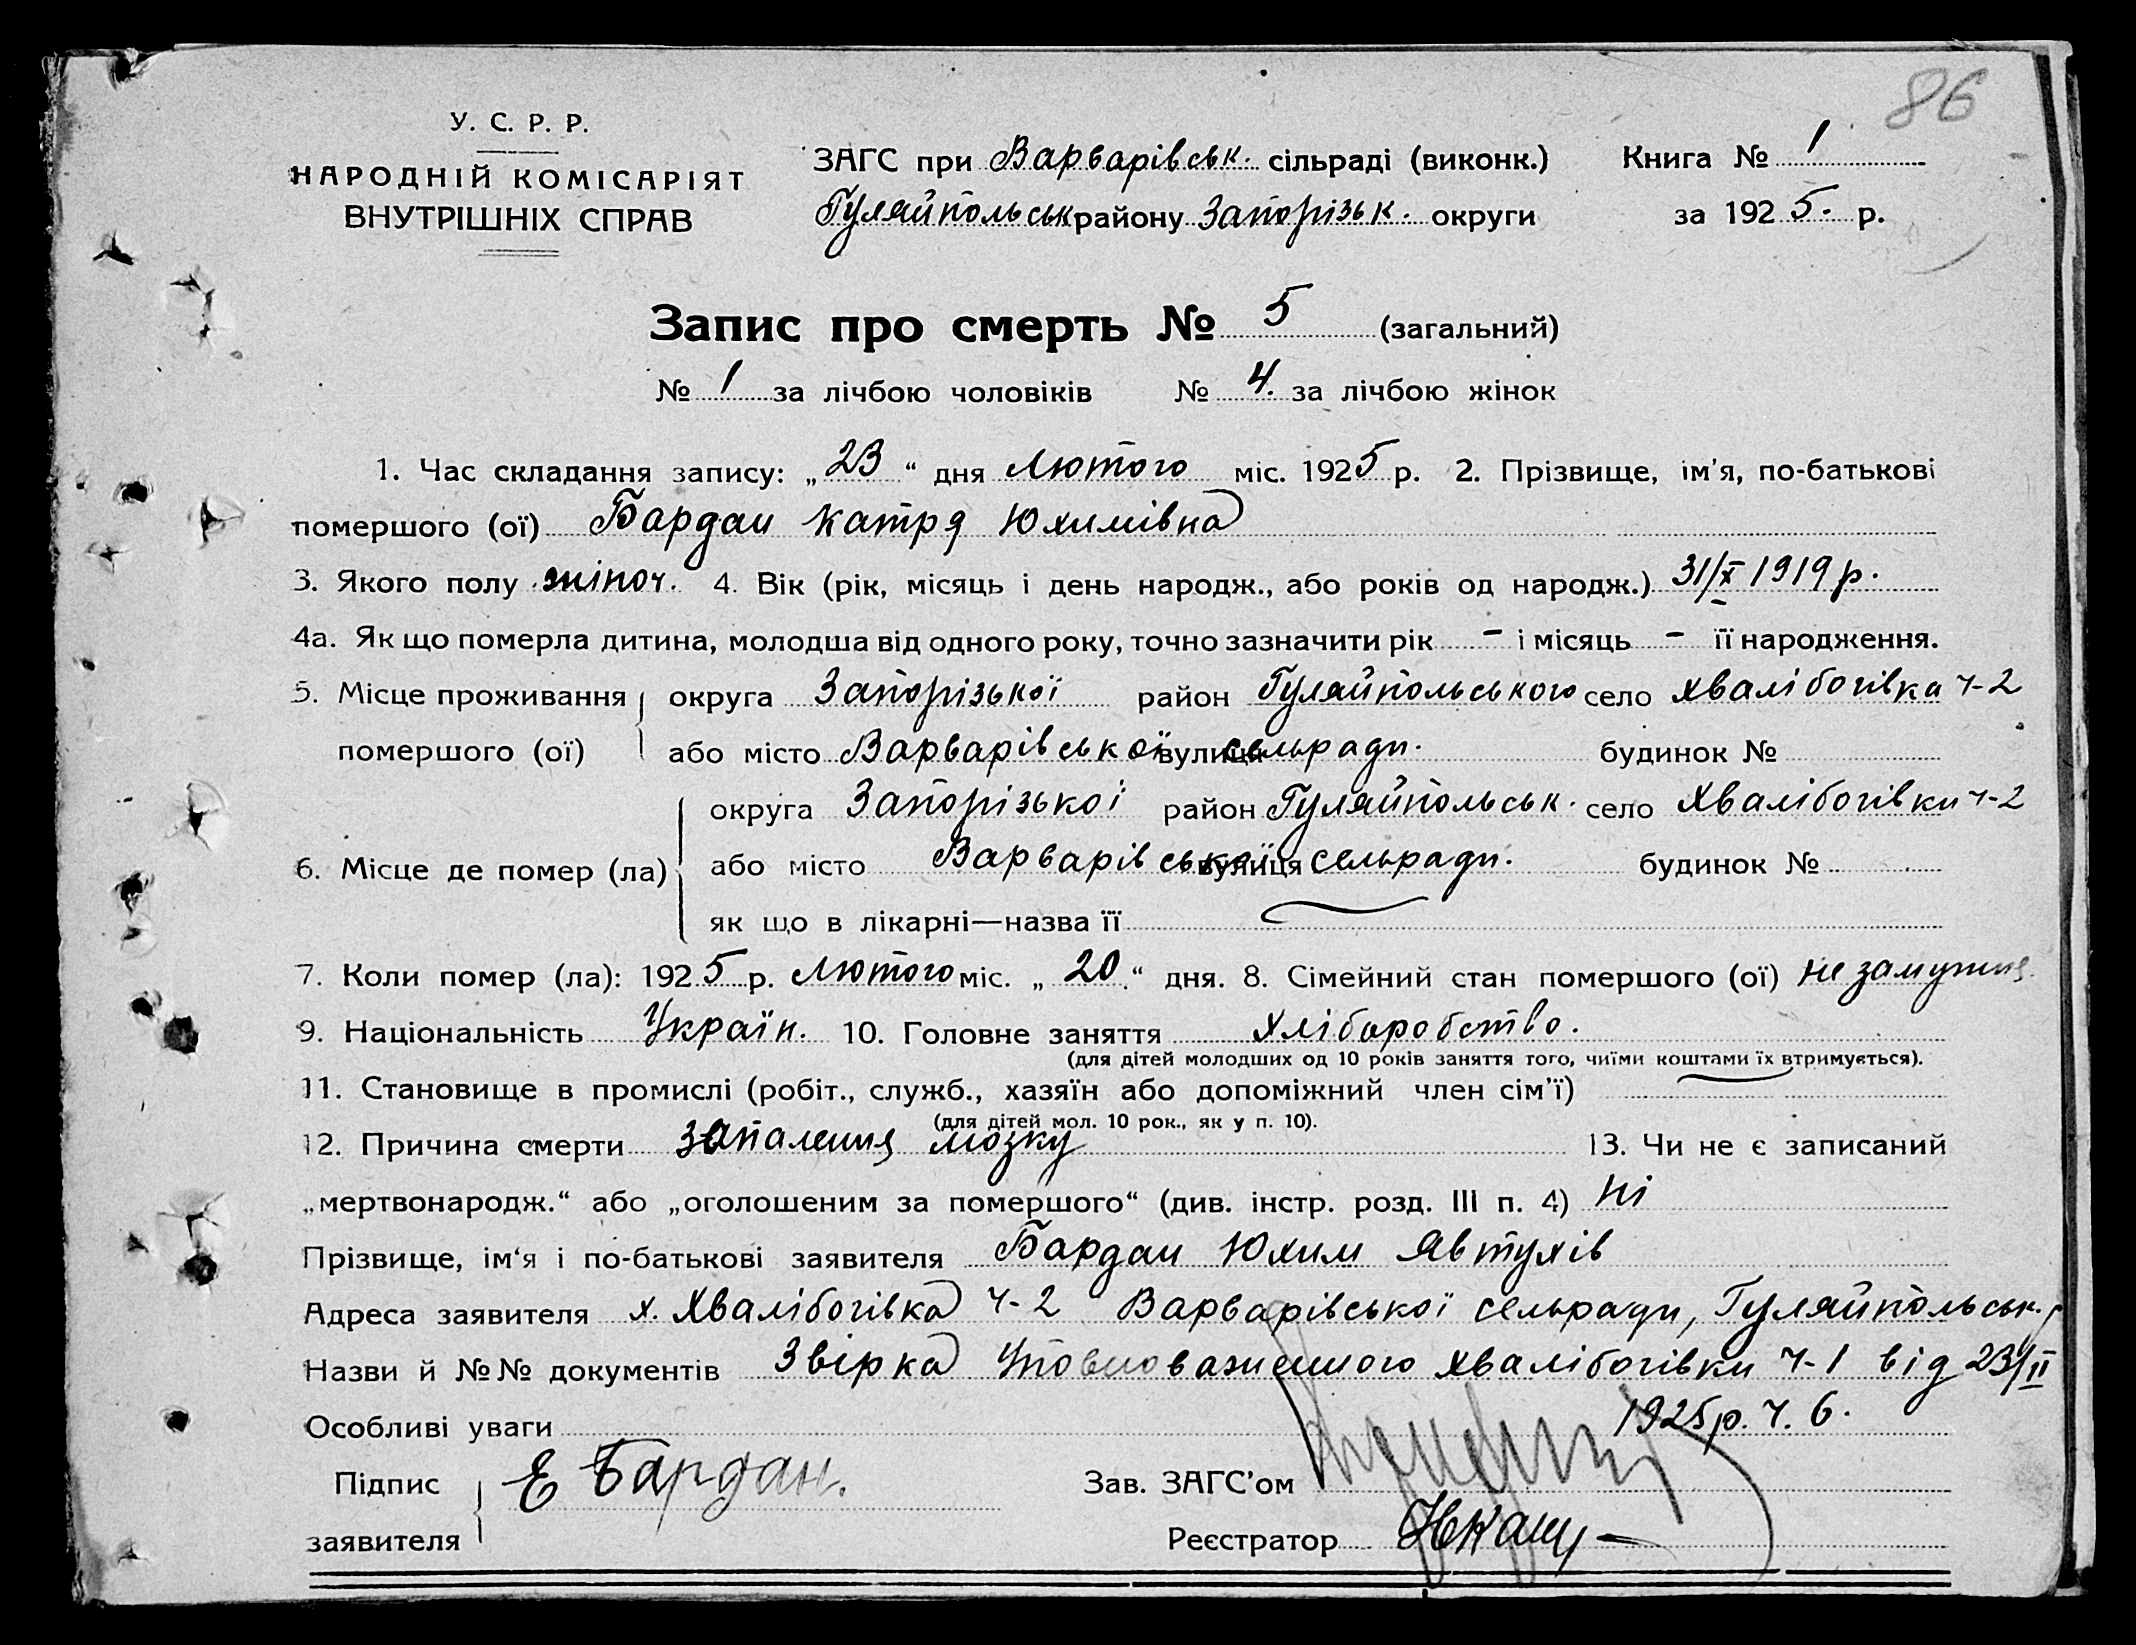 86
У. С. Р. Р.
НАРОДНІЙ КОМІСАРІЯТ
ВНУТРІШНІХ СПРАВ
ЗАГС при Варварівськ. сільраді (виконк.)
Гуляйпольськ району Запорізьк. округи
Книга № 1
за 1925. р.
Запис про смерть № 5 (загальний)
№ 1 за лічбою чоловіків № 4. за лічбою жінок
1. Час складання запису: „23“ дня Лютого міс. 1925 р. 2. Прізвище, ім'я, по-батькові
помершого (ої) Бардан Катря Юхимівна
3. Якого полу жіноч. 4. Вік (рік, місяць і день народж., або років од народж.) 31/X 1919 р.
4а. Як що померла дитина, молодша від одного року, точно зазначити рік - і місяць - її народження.
5. Місце проживання округа Запорізької район Гуляйпольського село Хвалібогівка ч-2
помершого (ої) або місто Варварівської вулиця сельради. будинок №
округа Запорізької район Гуляйпольськ. село Хвалібогівки ч-2
6. Місце де помер (ла) або місто Варварівської вулиця сельради. будинок №
як що в лікарні—назва її
7. Коли помер (ла): 1925 р. Лютого міс. „20.“ дня. 8. Сімейний стан помершого (ої) не замужня
9. Національність Україн. 10. Головне заняття хліборобство.
(для дітей молодших од 10 років заняття того, чиїми коштами їх втримується).
11. Становище в промислі (робіт., служб., хазяїн або допоміжний член сім'ї)
(для дітей мол. 10 рок., як у п. 10).
12. Причина смерти запалення мозку 13. Чи не є записаний
„мертвонародж.“ або „оголошеним за помершого“ (див. інстр. розд. III п. 4) Ні
Прізвище, ім'я і по-батькові заявителя Бардан Юхим Явтухів
Адреса заявителя х. Хвалібогівка ч-2 Варварівської сельради, Гуляйпольськ. р
Назви й №№ документів Звірка Уповноваженного Хвалібогівки ч-1 від 23/II
Особливі уваги 1925 р. ч. 6.
Підпис
заявителя Е Бардан.
Зав. ЗАГС'ом
Реєстратор